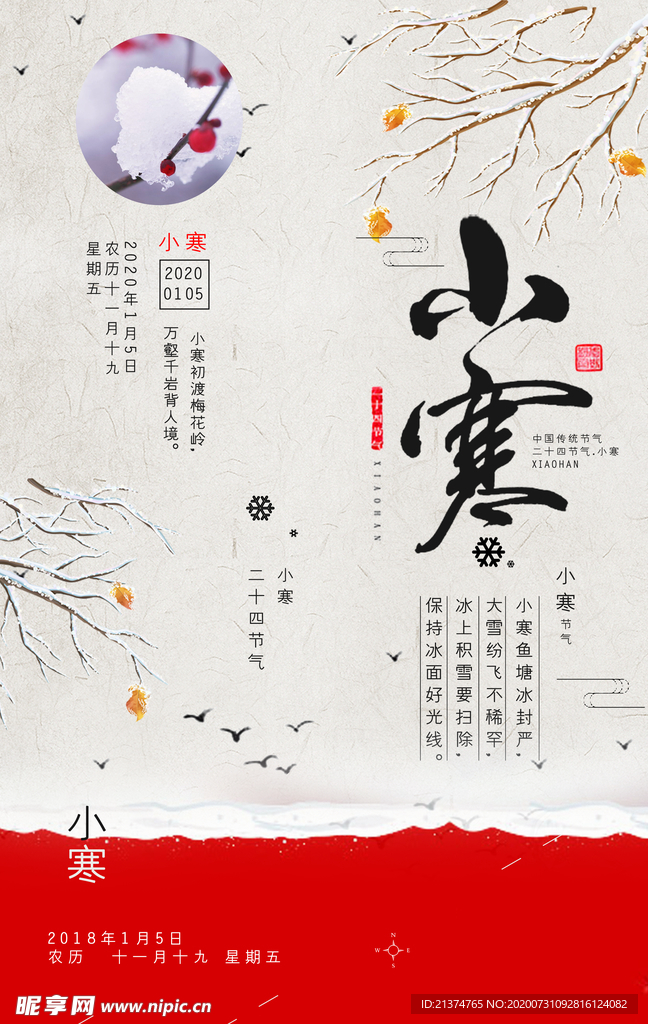 小寒
2020
0105
2020年1月5日
农历十一月十九
星期五
小寒初渡梅花岭，
万壑千岩背人境。
小寒
二十四节气
XIAOHAN
中国传统节气
二十四节气.小寒
XIAOHAN
小寒
二十四节气
小寒节气
小寒鱼塘冰封严，
大雪纷飞不稀罕，
冰上积雪要扫除，
保持冰面好光线。
小寒
2018年1月5日
农历 十一月十九 星期五
N
W E
S
昵享网 www.nipic.cn
ID:21374765 NO:20200731092816124082